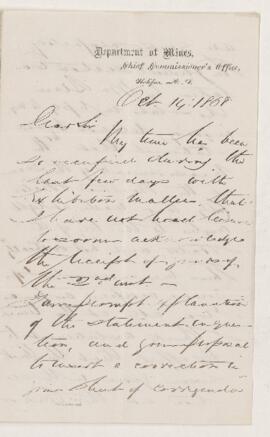 Department of Mines,
Chief Commissioner's Office,
Halifax N. S.
Oct 14: 1868
Dear Sir
My time has been
so occupied during the
last few days with
Exhibition matters that
I have not had leisure
to sooner acknowledge
the receipt of yours of
the 2nd inst
prompt explanation
of the statement in ques
tion, and your proposal
to insert a correction in
your sheet of corrigenda